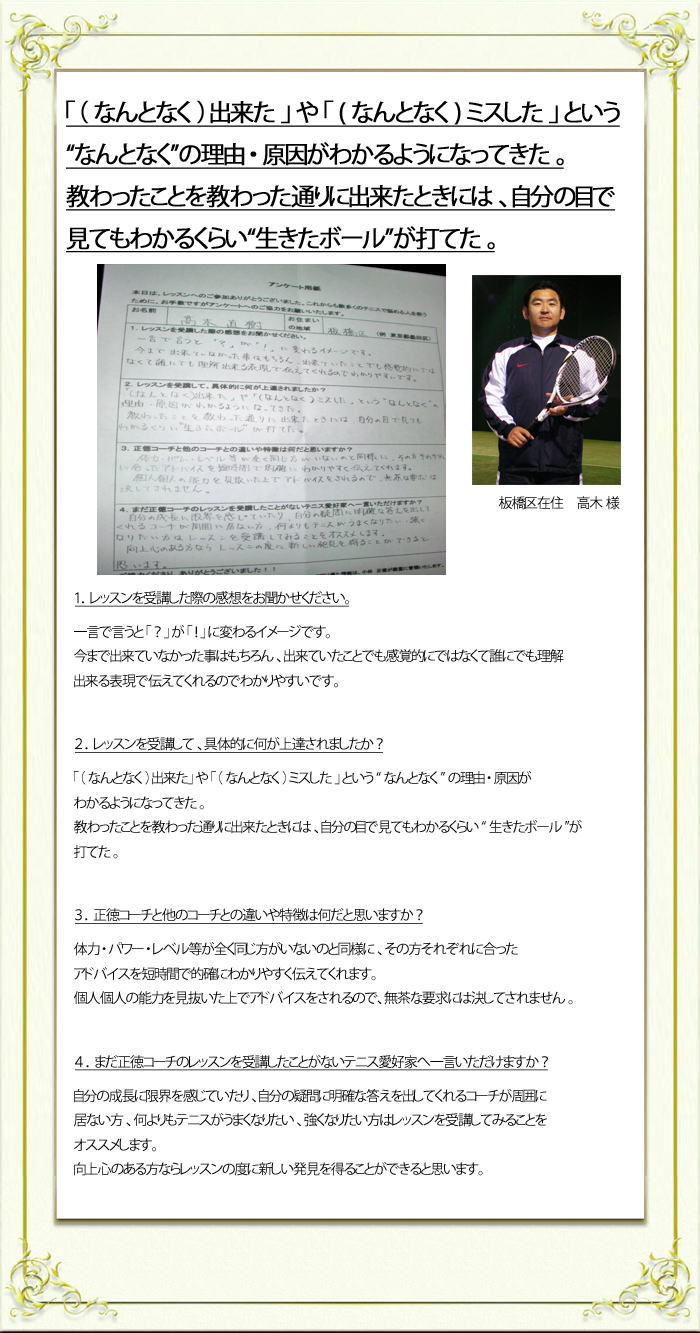 「（なんとなく）出来た」や「（なんとなく）ミスした」という
“なんとなく”の理由・原因がわかるようになってきた。
教わったことを教わった通りに出来たときには、自分の目で
見てもわかるくらい“生きたボール”が打てた。
アンケート用紙
本日は、レッスンへのご参加ありがとうございました。これからも数多くのテニスで悩める人を救う
ために、お手数ですがアンケートへのご協力をお願いいたします。
お名前 お住まいの地域 板橋区 （例：東京都墨田区）
1. レッスンを受講した際の感想をお聞かせください。
一言で言うと「？」が「！」に変わるイメージです。
今まで出来ていなかった事はもちろん、出来ていたことでも感覚的にでは
なくて誰にでも理解出来る表現で伝えてくれるのでわかりやすいです。
2. レッスンを受講して、具体的に何が上達されましたか？
(なんとなく)出来た」や「(なんとなく)ミスした」という“なんとなく”の
理由・原因がわかるようになってきた。
教わったことを教わった通りに出来たときには、自分の目で見ても
わかるくらい“生きたボール”が打てた。
3. 正徳コーチと他のコーチとの違いや特徴は何だと思いますか？
体力・パワー・レベル等が全く同じ方がいないのと同様に、その方それぞれ
に合ったアドバイスを短時間で的確にわかりやすく伝えてくれます。
個人個人の能力を見抜いた上でアドバイスをされるので、無茶な要求は
決してされません。
4. まだ正徳コーチのレッスンを受講したことがないテニス愛好家へ一言いただけますか？
自分の成長に限界を感じていたり、自分の疑問に明確な答えを出して
くれるコーチが周囲に居ない方、何よりもテニスがうまくなりたい、強く
なりたい方はレッスンを受講してみることをオススメします。
向上心のある方ならレッスンの度に新しい発見を得ることができると
思います。
ご協力ください、ありがとうございました！！
板橋区在住　高木 様
1. レッスンを受講した際の感想をお聞かせください。
一言で言うと「？」が「！」に変わるイメージです。
今まで出来ていなかった事はもちろん、出来ていたことでも感覚的にではなくて誰にでも理解
出来る表現で伝えてくれるのでわかりやすいです。
２．レッスンを受講して、具体的に何が上達されましたか？
「（なんとなく）出来た」や「（なんとなく）ミスした」という“なんとなく”の理由・原因が
わかるようになってきた。
教わったことを教わった通りに出来たときには、自分の目で見てもわかるくらい“生きたボール”が
打てた。
３．正徳コーチと他のコーチとの違いや特徴は何だと思いますか？
体力・パワー・レベル等が全く同じ方がいないのと同様に、その方それぞれに合った
アドバイスを短時間で的確にわかりやすく伝えてくれます。
個人個人の能力を見抜いた上でアドバイスをされるので、無茶な要求には決してされません。
４．まだ正徳コーチのレッスンを受講したことがないテニス愛好家へ一言いただけますか？
自分の成長に限界を感じていたり、自分の疑問に明確な答えを出してくれるコーチが周囲に
居ない方、何よりもテニスがうまくなりたい、強くなりたい方はレッスンを受講してみることを
オススメします。
向上心のある方ならレッスンの度に新しい発見を得ることができると思います。